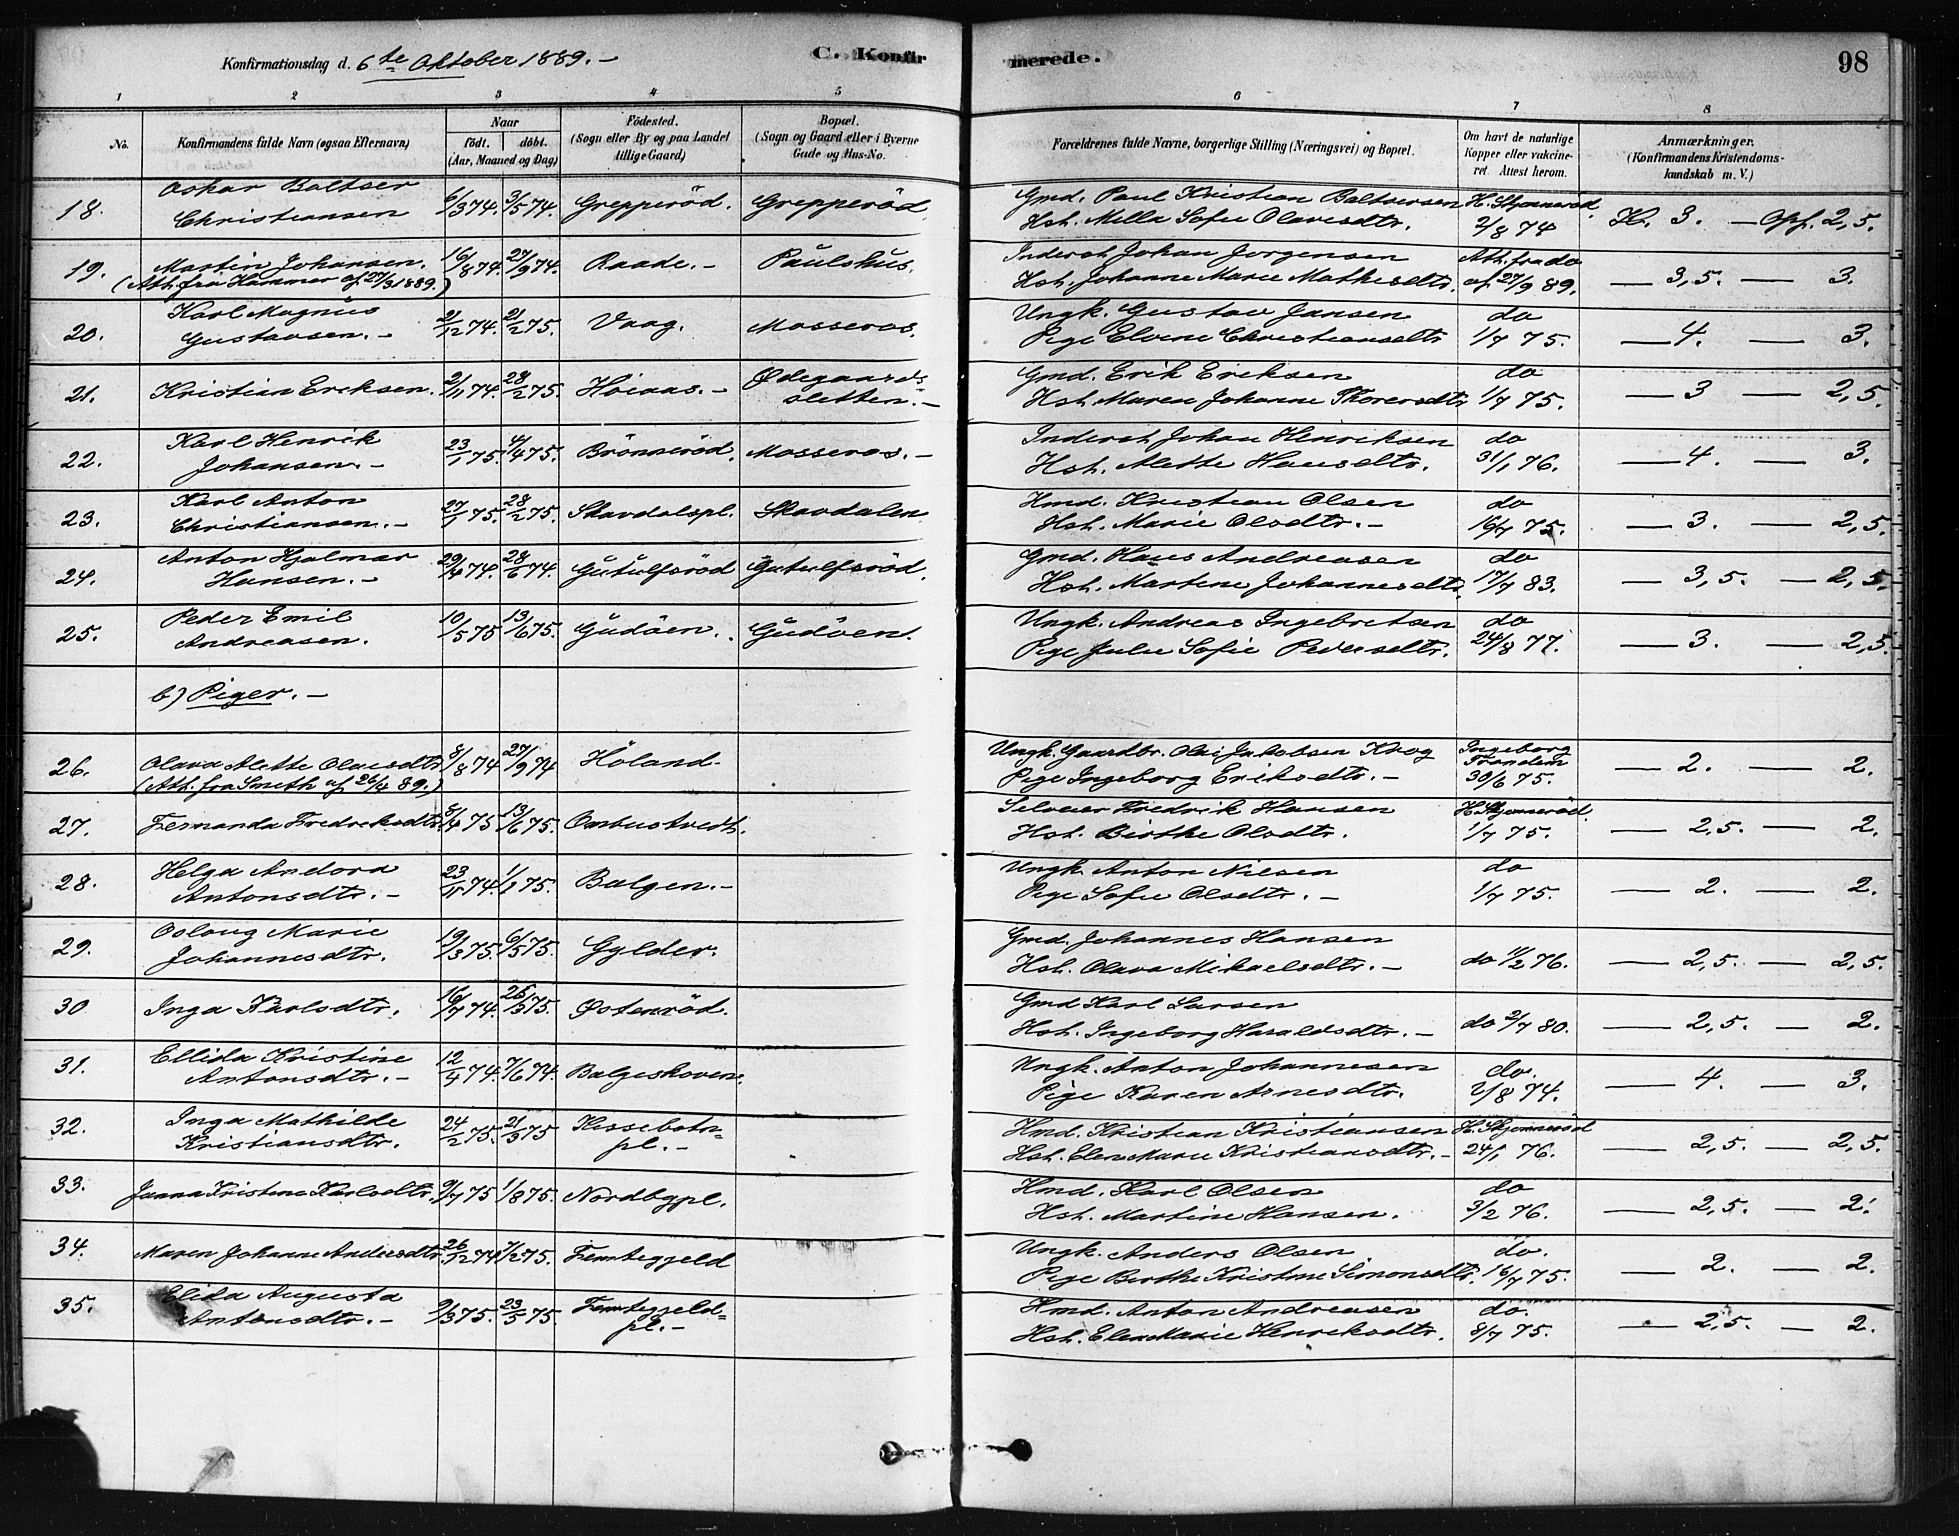 Konfirmationsdag d. 6te Oktober 1889. – C. Konfirmerede. 98
1 2 3 4 5 6 7 8
No. Konfirmandens fulde Navn (ogsaa Efternavn) Naar födt. döbt. (Aar, Maaned og Dag) Födested. (Sogn eller By og paa Landet tillige Gaard) Bopæl. (Sogn og Gaard eller i Byerne Gade og Hus-No. Forældrenes fulde Navne, borgerlige Stilling (Næringsvei) og Bopæl. Om havt de naturlige Kopper eller vakcineret. Attest herom. Anmærkninger. (Konfirmandens Kristendomskundskab m. V.)
18. Oskar Baltser Christiansen 6/3 74. 3/5 74. Grepperöd. Grepperöd. Gmd. Paul Kristian Baltsersen Hst. Mella Sofie Olavesdtr. H. Skjennerød. 2/8 74 Kr. 3. — Opf. 2,5.
19. Martin Johansen. (Att. fra Hammer af 27/9 1889.) 16/8 74. 27/9 74. Raade. – Paulshus. Inderst Johan Jorgensen Hst. Johanne Marie Mathisdtr. Att. fra do af 27/9 89. — 3,5. — 3.
20. Karl Magnus Gustavsen. – 2/12 74. 21/2 75. Vaag. Mosseros. Ungk. Gustav Jansen Pige Elvine Christiansdtr do 1/7 75. — 4. — 3.
21. Kristian Eriksen. 2/11 74. 28/2 75. Höiaas. – Ödegaardssletten. – Gmd. Erik Eriksen Hst. Maren Johanne Thorersdtr do 1/7 75. — 3 — 2,5.
22. Karl Henrik Johansen. – 23/1 75. 4/4 75. Brönneröd. Mosseros. – Inderst Johan Henriksen Hst. Alette Hansdtr. do 31/1 76. — 4. — 3.
23. Karl Anton Christiansen. – 27/1 75. 28/2 75. Skavdalspl. Skavdalen Hmd. Kristian Olsen Hst. Marie Olsdtr. – do 16/7 75. — 3. — 2,5.
24. Anton Hjalmar Hansen. – 29/4 74. 28/6 74. Gutulfsröd Gutulfsröd. Gmd. Hans Andreasen Hst. Martine Johannesdtr. do 17/7 83. — 3,5. — 2,5.
25. Peder Emil Andreasen. 10/5 75 13/6 75. Gudöen. Gudöen. Ungk. Andreas Ingebretsen Pige Julie Sofie Pedersdtr. do 24/8 77. — 3. — 2,5.
b) Piger. –
26. Olava Alette Olavsdtr (Att. fra Smith af 26/4 89.) 8/8 74 27/9 74 Höland. Ungk. Gaardbr. Ole Jakobsen Krog Pige Ingeborg Eriksdtr. – Ingeborg 30/6 75. — 2. — 2.
27. Fernanda Fredriksdtr. 8/4 75 13/6 75. Ombustvedt. Selveier Fredrik Hansen Hst. Birthe Olsdtr. H. Skjennerød. 1/7 75. — 2,5. — 2.
28. Helga Andora Antonsdtr. – 23/11 74. 1/1 75. Balgen. – Ungk. Anton Nilsen Pige Sofie Olsdtr. – do 1/7 75. — 2. — 2.
29. Oslaug Marie Johannesdtr. 19/3 75. 6/5 75. Gylder. Gmd. Johannes Hansen Hst. Olava Mikaelsdtr. – do 11/2 76. — 2,5. — 2,5.
30 Inga Karlsdtr. 16/7 74. 26/3 75. Østenröd. Gmd Karl Larsen Hst. Ingeborg Haraldsdtr. – do 2/7 80. — 2,5. — 2.
31. Ellida Kristine Antonsdtr. – 12/4 74. 7/6 74. Balgeskoven. Ungk. Anton Johannesen Pige Karen Arnesdtr. do. 2/8 74. — 4. — 3.
32. Inga Mathilde Kristiansdtr. 24/2 75. 21/3 75 Kissebotnpl. – Hmd. Kristian Kristiansen Hst. Elen Marie Kristiansdtr. – H. Skjennerød 24/1 76. — 2,5. — 2,5.
33. Janna Kristine Karlsdtr. 9/7 75 1/8 75. Nordbypl. Hmd. Karl Olsen Hst. Martine Hansen. do 3/2 76. — 2,5. — 2.
34. Maren Johanne Andersdtr. 26/12 74 7/2 75. Femtegjeld Ungk. Anders Olsen Pige Berthe Kristine Simonsdtr. do. 16/7 75. — 2. — 2.
35. Elida Augusta Antonsdtr. – 9/3 75. 23/5 75. Femtegjeldpl. – Hmd. Anton Andreasen Hst. Elen Marie Henriksdtr. do. 8/7 75. — 2,5. — 2.